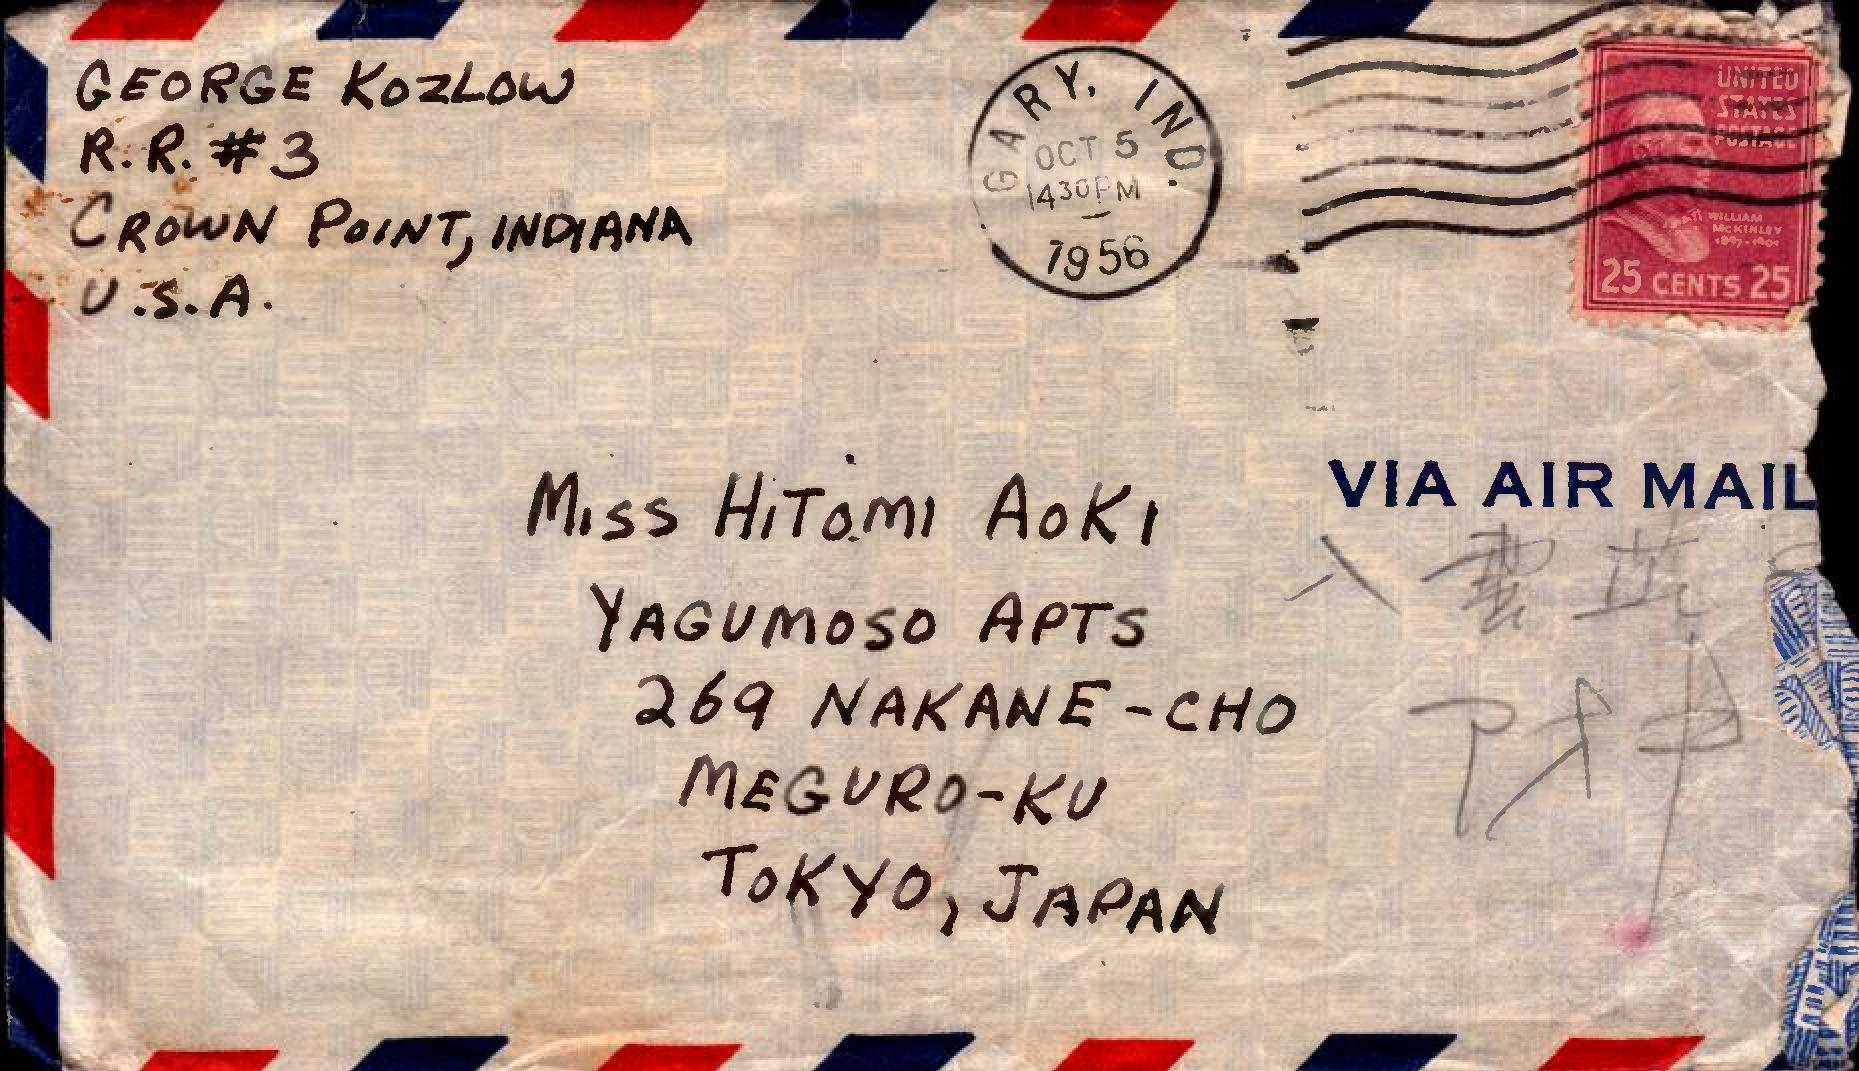 GEORGE KOZLOW
R.R. #3
CROWN POINT, INDIANA
U.S.A.
GARY, IND.
OCT 5
1430PM
1956
UNITED
STATES
POSTAGE
WILLIAM
MCKINLEY
1897-1901
25 CENTS 25
VIA AIR MAIL
MISS HITOMI AOKI
YAGUMOSO APTS
269 NAKANE-CHO
MEGURO-KU
TOKYO, JAPAN
八雲荘